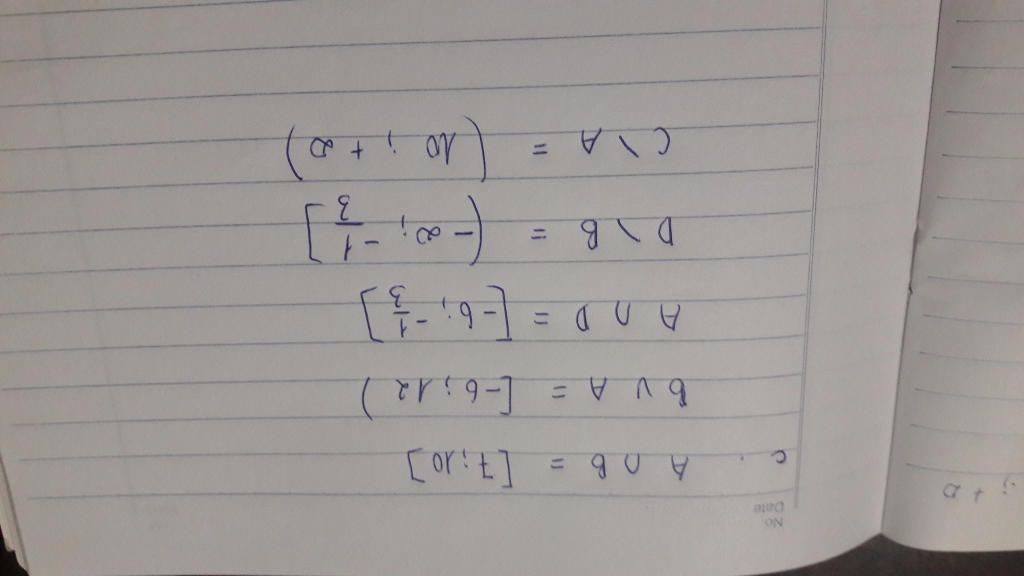 No.
Date
c. A ∩ B = [7;10]
B ∪ A = [-6;12)
A ∩ D = [-6; -1/3]
D \ B = (-∞; -1/3]
C \ A = (10; +∞)
; +∞